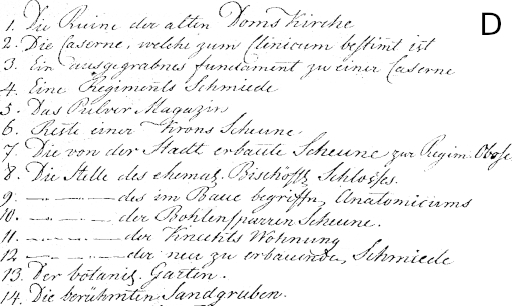 D
1. Die Ruine der alten Doms Kirche
2. Die Caserne, welche zum Clinicum bestim̅t ist
3. Ein ausgegrabnes fundament zu einer Caserne
4. Eine Regiments Schmiede
5. Das Pulver Magazin
6. Reste einer Krons Scheune.
7. Die von der Stadt erbaute Scheune zur Regim. Obose
8. Die Stelle des ehemal. Bischöffl. Schlosses.
9. — — — des im Baue begriffn. Anatomicums
10. — — — der Bohlensparren Scheune.
11. — — — der Knechts Wohnung
12 — — — der neu zu erbauenden Schmiede
13. Der botanis. Garten.
14. Die berühmten Sandgruben.